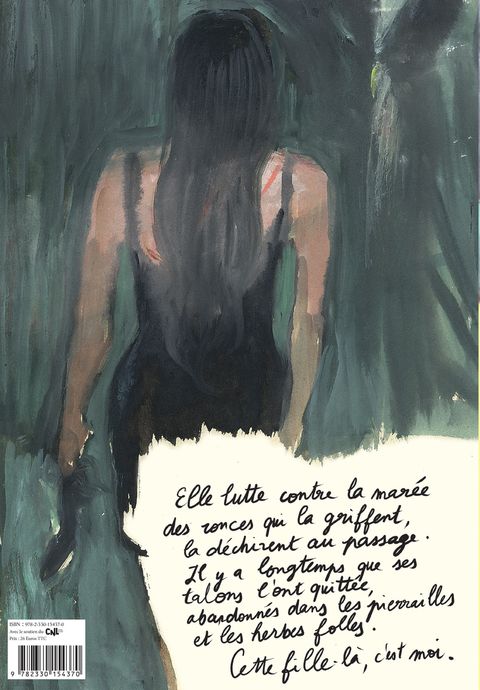 Elle lutte contre la marée
des ronces qui la griffent,
la déchirent au passage.
Il y a longtemps que ses
talons l'ont quittée,
abandonnés dans les pierrailles
et les herbes folles.
Cette fille-là, c'est moi.
ISBN : 978-2-330-15437-0
Avec le soutien du CNL
Prix : 26 Euros TTC
9 782330 154370